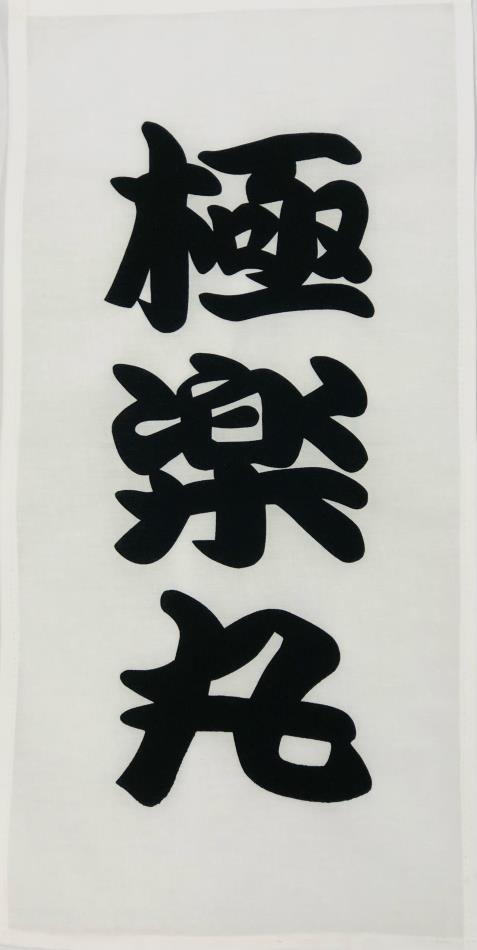 極楽丸